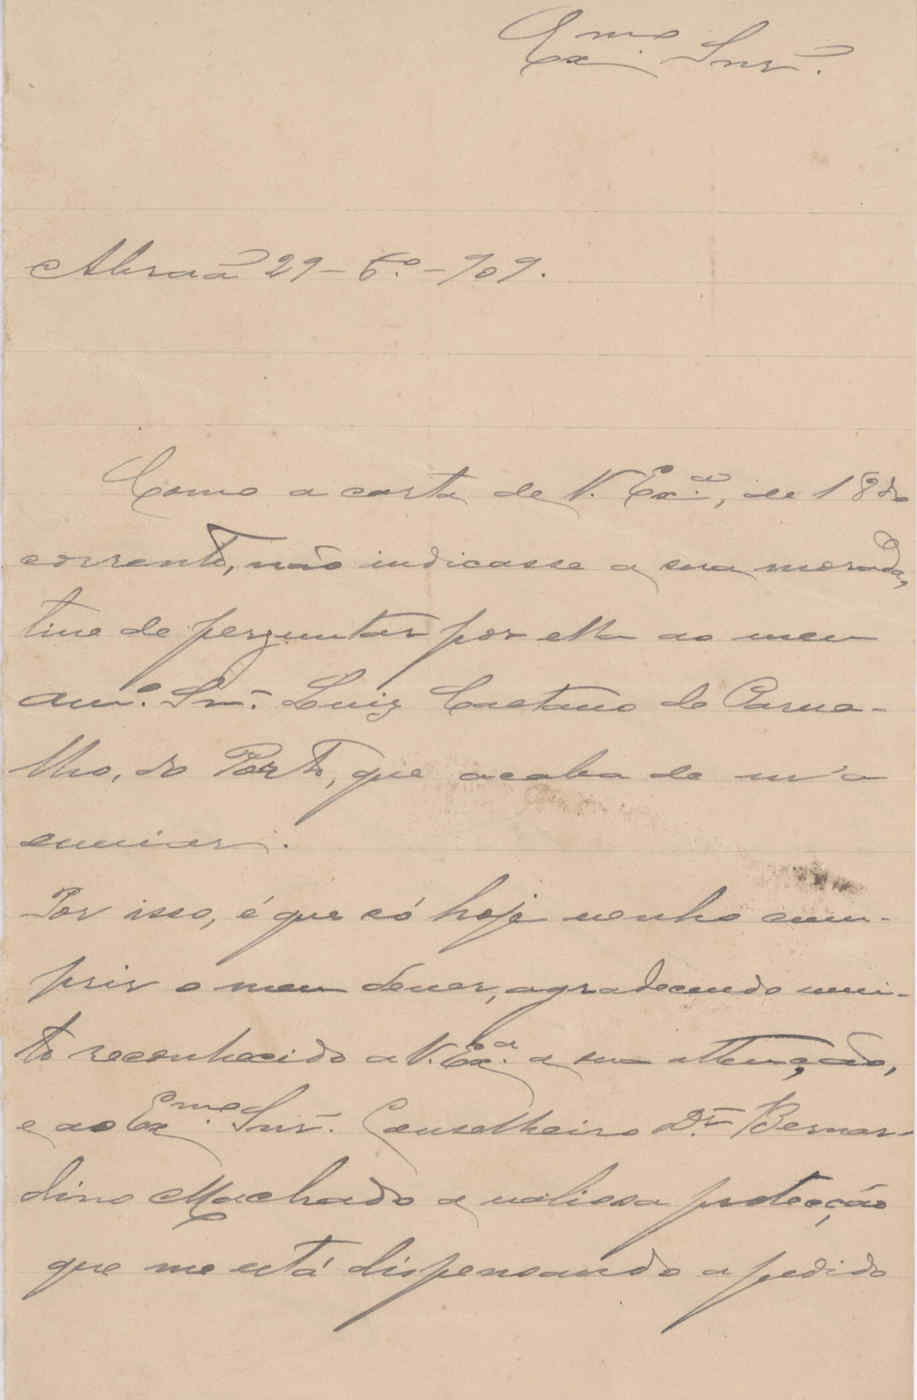 Exmo. Snr.
Abraã 29-6.º-909.
Como a carta de V. Ex.ª, de 18 do
corrente, não indicasse a sua morada,
tive de perguntar por ella ao meu
am.º Snr. Luiz Caetano de Carva-
lho, do Porto, que acaba de m'a
enviar.
Por isso, é que só hoje venho cum-
prir o meu dever, agradecendo mui-
to reconhecido a V. Ex.ª a sua attenção,
e ao Exmo. Snr. Conselheiro Dr. Bernar-
dino Machado a valiosa protecção
que me está dispensando a pedido